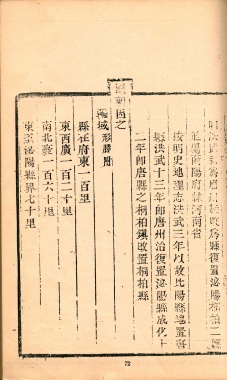 改爲縣復置泌陽桐柏二縣
南陽府隸河南省
按明史地理志洪武三年以故比陽縣地置唐
縣洪武十三年即唐州治復置泌陽縣成化十
二年即唐縣之桐柏鎮改置桐柏縣
國朝因之
疆域 形勝附
縣在府東一百里
東西廣一百二十里
南北袤一百六十里
東至泌陽縣界七十里
72